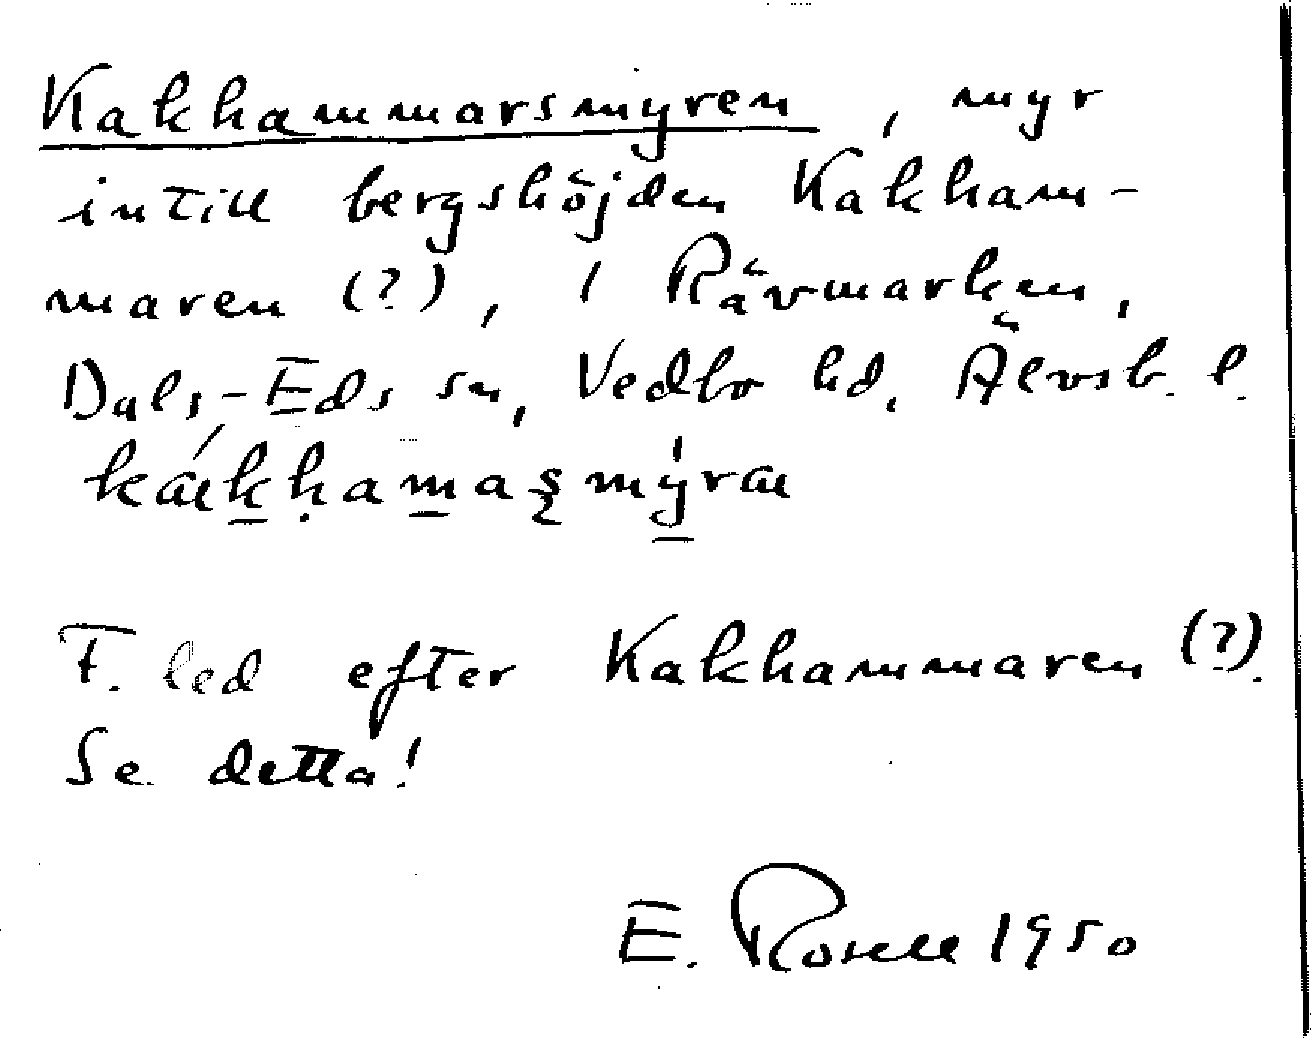 Kakhammarsmyren, myr
intill bergshöjden Kakham-
maren (?), i Rävmarken,
Dals-Eds sn, Vedbo hd, Älvsb. l.
kækhamaʂmýræ
F. led efter Kakhammaren (?).
Se detta!
E. Rosell 1950